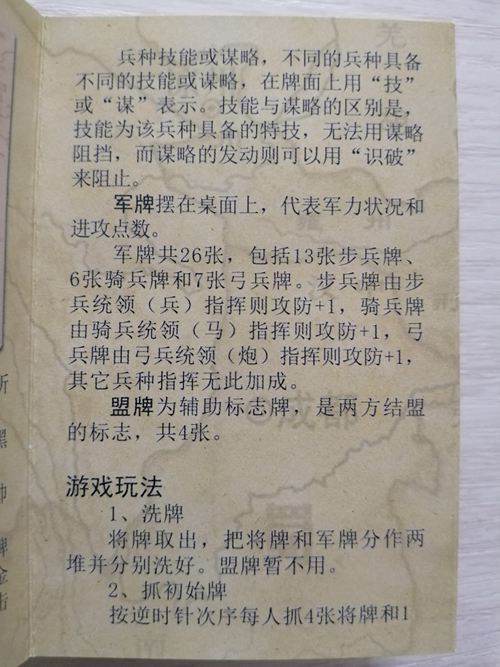 兵种技能或谋略，不同的兵种具备
不同的技能或谋略，在牌面上用“技”
或“谋”表示。技能与谋略的区别是，
技能为该兵种具备的特技，无法用谋略
阻挡，而谋略的发动则可以用“识破”
来阻止。
军牌摆在桌面上，代表军力状况和
进攻点数。
军牌共26张，包括13张步兵牌、
6张骑兵牌和7张弓兵牌。步兵牌由步
兵统领（兵）指挥则攻防+1，骑兵牌
由骑兵统领（马）指挥则攻防+1，弓
兵牌由弓兵统领（炮）指挥则攻防+1，
其它兵种指挥无此加成。
盟牌为辅助标志牌，是两方结盟
的标志，共4张。
游戏玩法
1、洗牌
将牌取出，把将牌和军牌分作两
堆并分别洗好。盟牌暂不用。
2、抓初始牌
按逆时针次序每人抓4张将牌和1